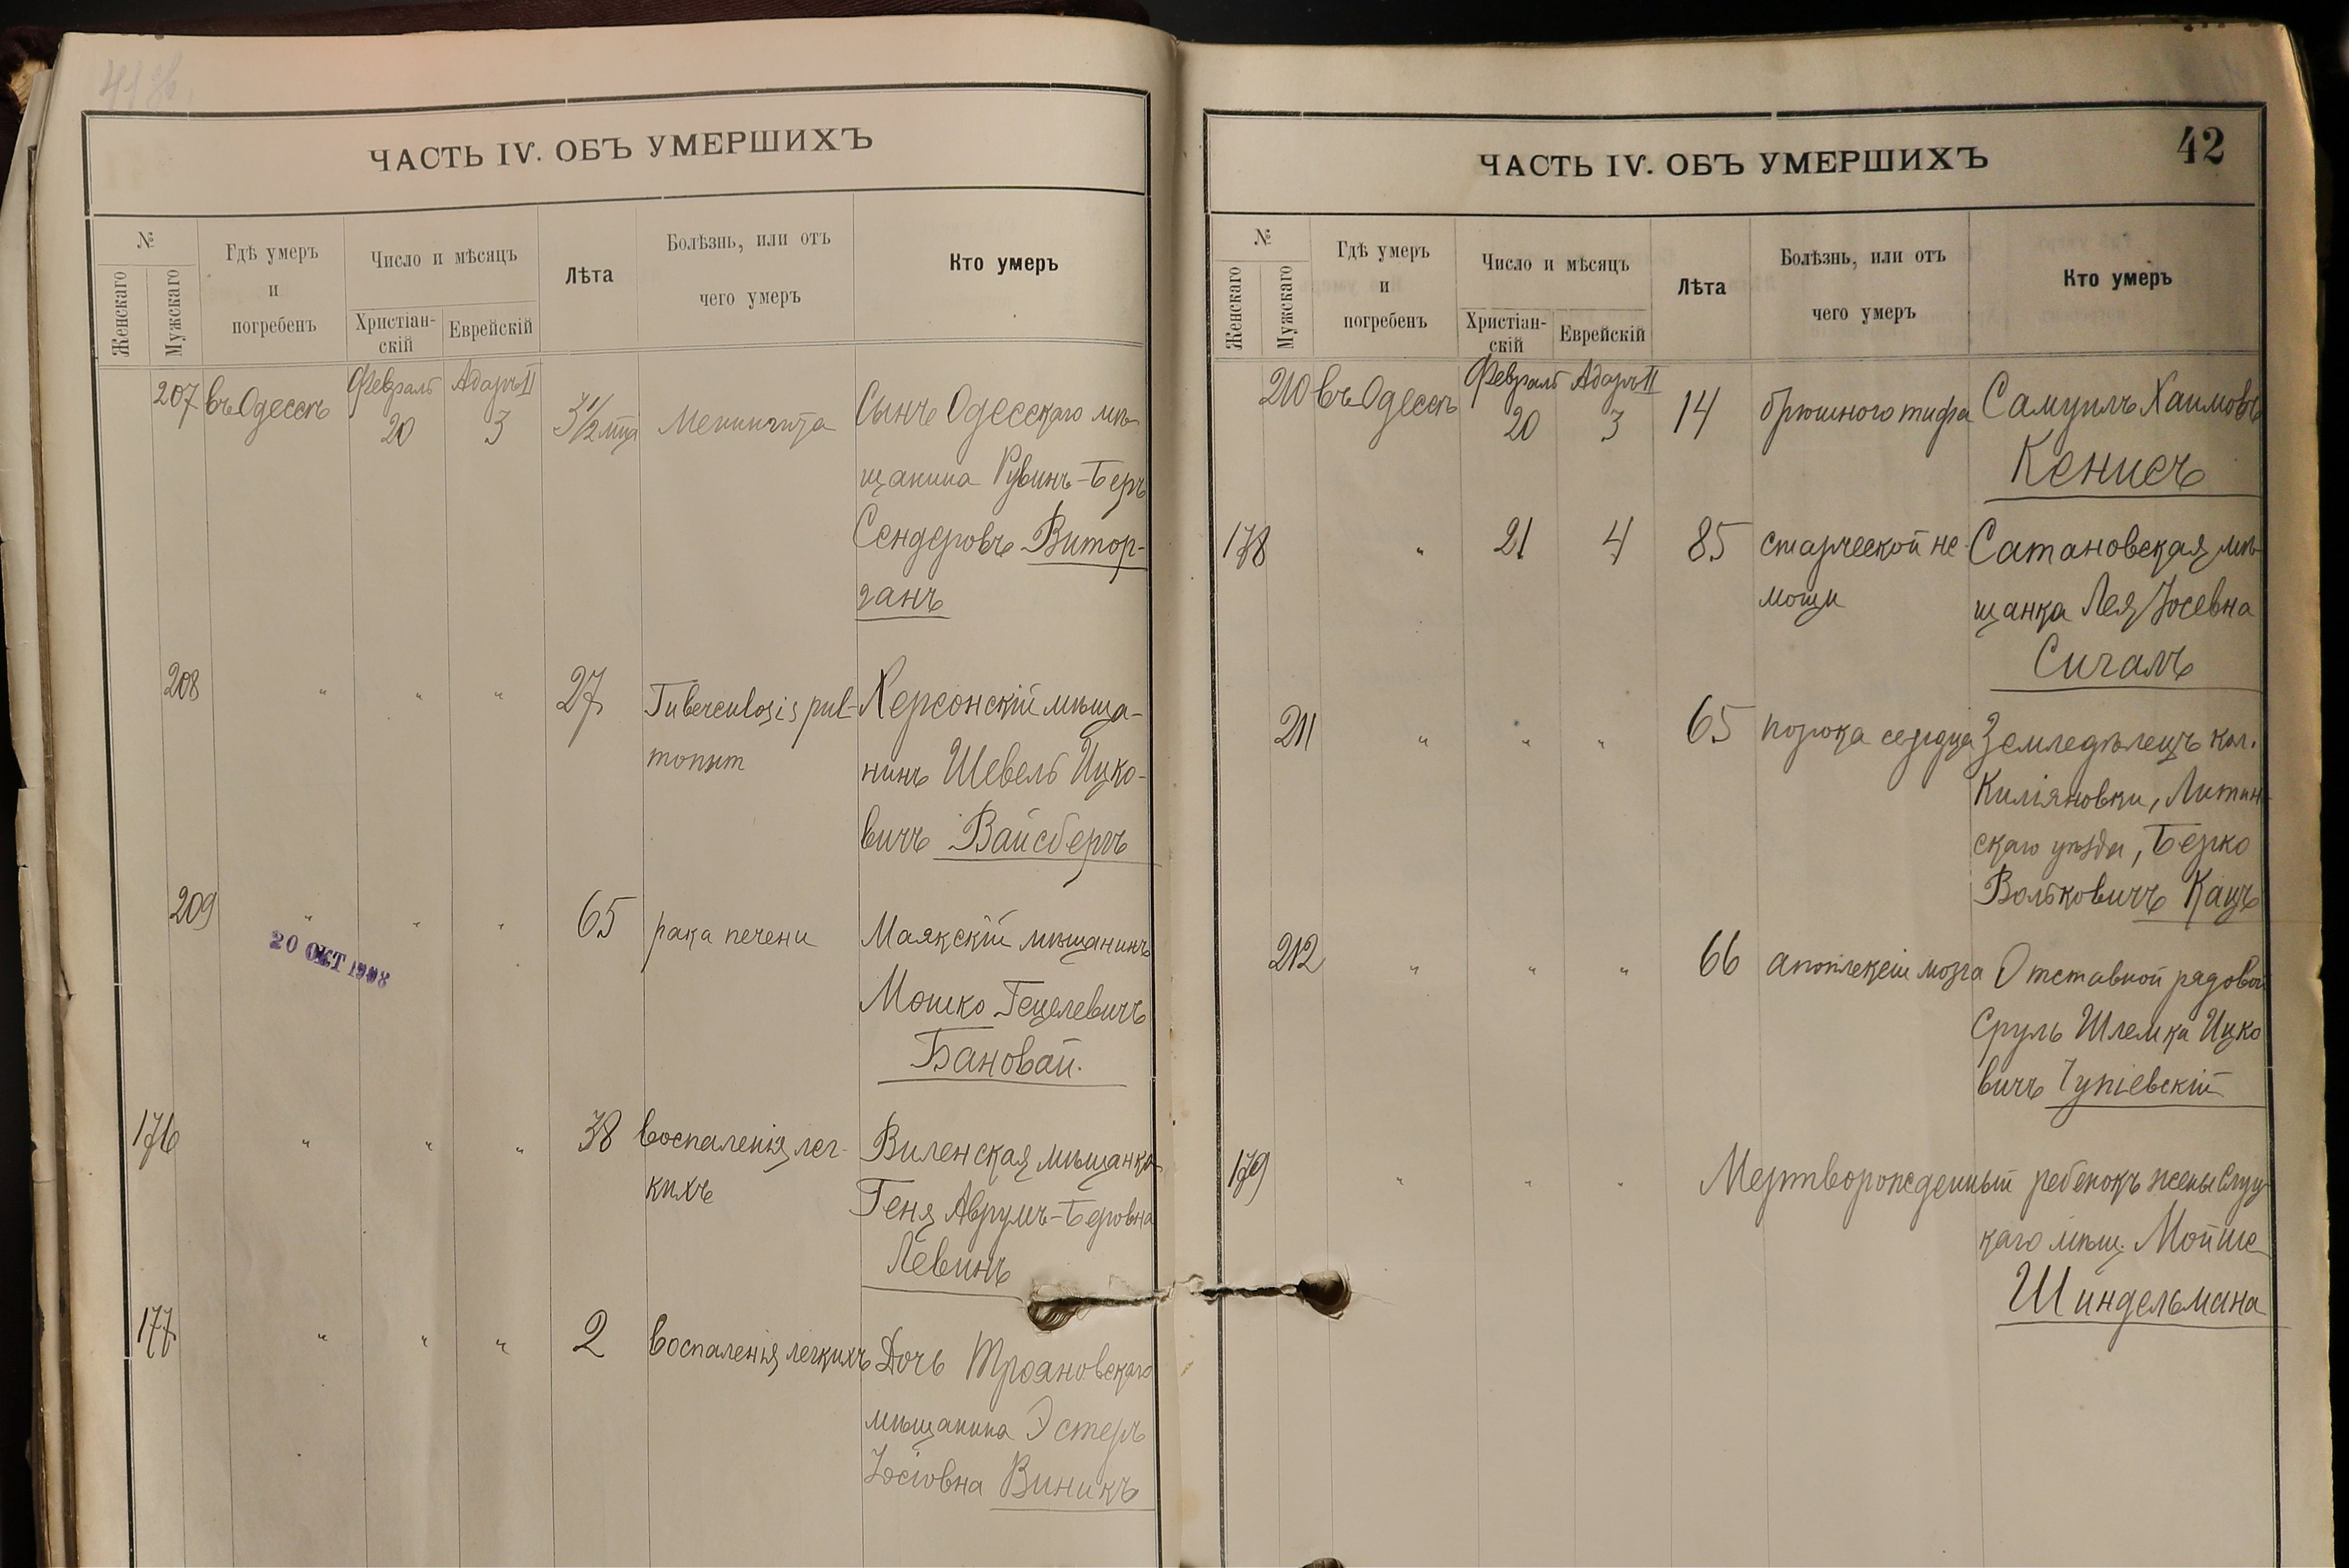 ЧАСТЬ IV. ОБЪ УМЕРШИХЪ
№
Женскаго
Мужскаго
Гдѣ умеръ
и
погребенъ
Число и мѣсяцъ
Христіан-
скій
Еврейскій
Лѣта
Болѣзнь, или отъ
чего умеръ
Кто умеръ
207 въ Одессѣ Февраль 20 Адаръ II 3 3 1/2 мца Менингита Сынъ Одесскаго мѣ-
щанина Рувинъ-Беръ
Сендеровъ Витор-
ганъ
208 " " " 27 Tuberculosis pul- Херсонскій мѣща-
нинъ Шевель Ицко-
вичъ Вайсбергъ
209 " " " 65 рака печени Маякскій мѣщанинъ
Мошко Гецелевичъ
Бановай.
20 ОКТ 1908
176 " " " 38 воспаленія лег- Виленская мѣщанка
кихъ Геня Аврумъ-Беровна
Левинъ
177 " " " 2 воспаленія легкихъ Дочь Трояновскаго
мѣщанина Эстеръ
Іосіовна Виникъ
ЧАСТЬ IV. ОБЪ УМЕРШИХЪ
42
№
Женскаго
Мужскаго
Гдѣ умеръ
и
погребенъ
Число и мѣсяцъ
Христіан-
скій
Еврейскій
Лѣта
Болѣзнь, или отъ
чего умеръ
Кто умеръ
210 въ Одессѣ Февраль 20 Адаръ II 3 14 брюшного тифа Самуилъ Хаимовъ
Кенисъ
178 " 21 4 85 старческой не- Сатановская мѣ-
мощи щанка Лея Іосевна
Сигалъ
211 " " " 65 порока сердца Земледѣлецъ кол.
Киліяновки, Литин-
скаго уѣзда, Берко
Вольковичъ Кацъ
212 " " " 66 апоплексіи мозга Отставной рядовой
Сруль Шлемка Ицко
вичъ
179 " " " Мертворожденный ребенокъ жены Слуц
каго мѣщ. Мойше
Шиндельмана